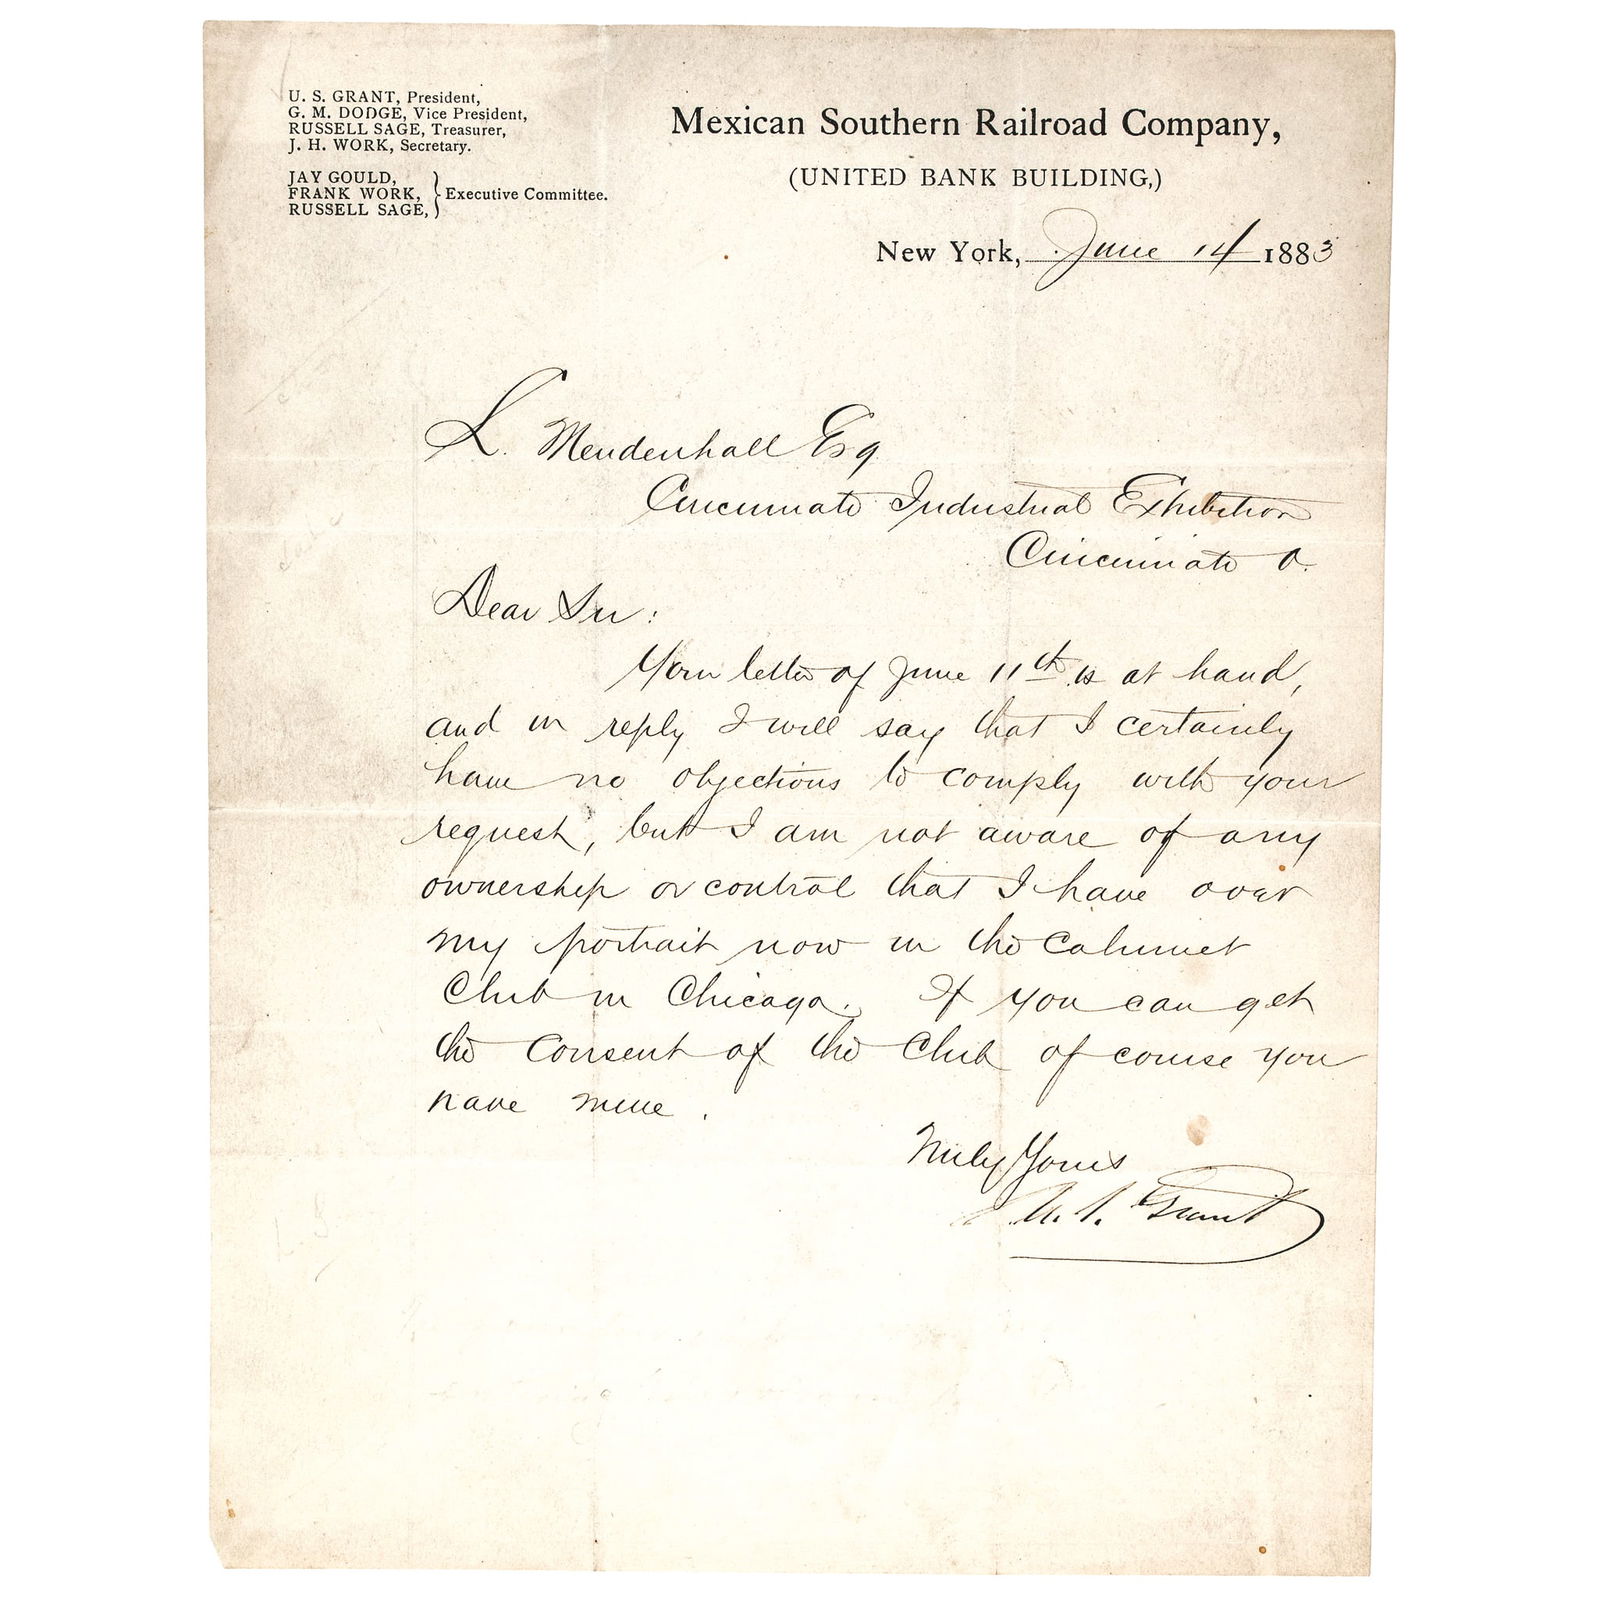 U. S. GRANT, President,
G. M. DODGE, Vice President,
RUSSELL SAGE, Treasurer,
J. H. WORK, Secretary.
JAY GOULD,
FRANK WORK, } Executive Committee.
RUSSELL SAGE,
Mexican Southern Railroad Company,
(UNITED BANK BUILDING,)
New York, June 14 1883
L. Mendenhall Esq
Cincinnati Industrial Exhibition
Cincinnati O.
Dear Sir:
Your letter of June 11th is at hand,
and in reply I will say that I certainly
have no objections to comply with your
request, but I am not aware of any
ownership or control that I have over
my portrait now in the Calumet
Club in Chicago. If you can get
the consent of the Club of course you
have mine.
Truly Yours
U. S. Grant